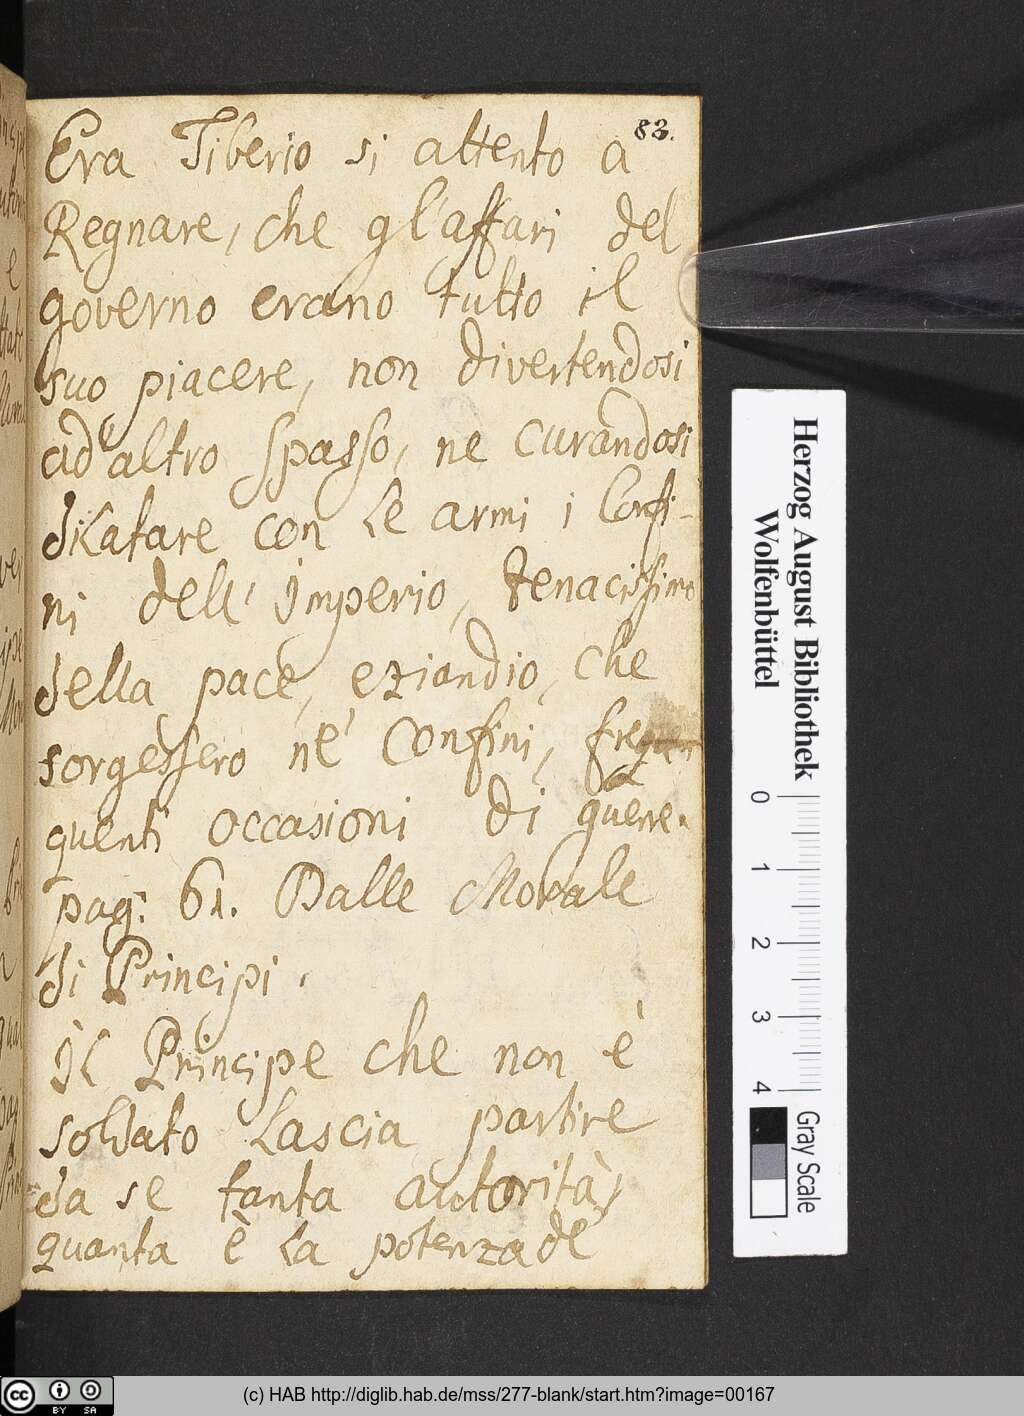 83.
Era Tiberio si attento a
Regnare, che gl'affari del
governo erano tutto il
suo piacere, non divertendosi
ad altro spasso, ne curandosi
dilatare con le armi i Confi-
ni dell' imperio, tenacissimo
della pace, eziandio, che
sorgessero nè Confini, freque
quenti occasioni di guerre.
pag: 61. Dalle Morale
di Principi.
Il Principe che non è
soldato Lascia partire
da se tanta autorità,
quanta è la potenza de
Herzog August Bibliothek
Wolfenbüttel
0 1 2 3 4
Gray Scale
(c) HAB http://diglib.hab.de/mss/277-blank/start.htm?image=00167
cc BY SA